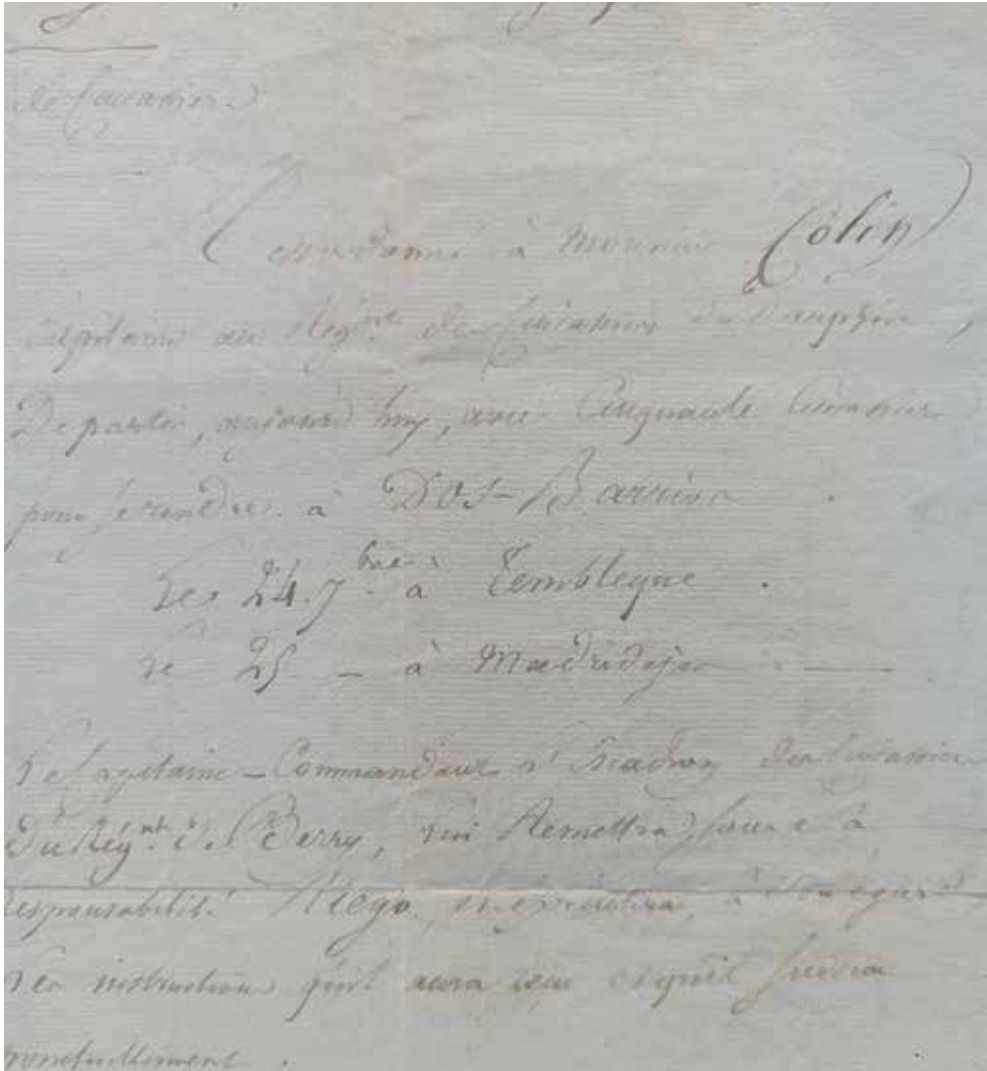 de Cuirassiers
Il est ordonné à Monsieur Colin
Capitaine au Régnt de Cuirassiers du Dauphin,
De partir, aujourd'huy, avec Cinquante Cuirassiers
pour se rendre à Dos-Barrios
Le 24. 7bre à Tembleque
Le 25 - à Madridejos
Le Capitaine-Commandant l'Escadron des Cuirassiers
Du Régnt de Berry, lui Remettra, sous sa
responsabilité Riego, à son égard
les instructions qu'il aura et qu'il suivra
ponctuellement.